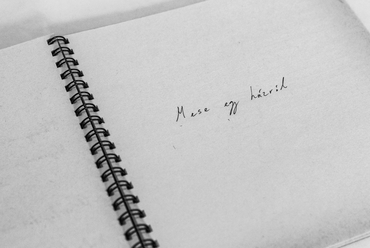 Mese egy házról